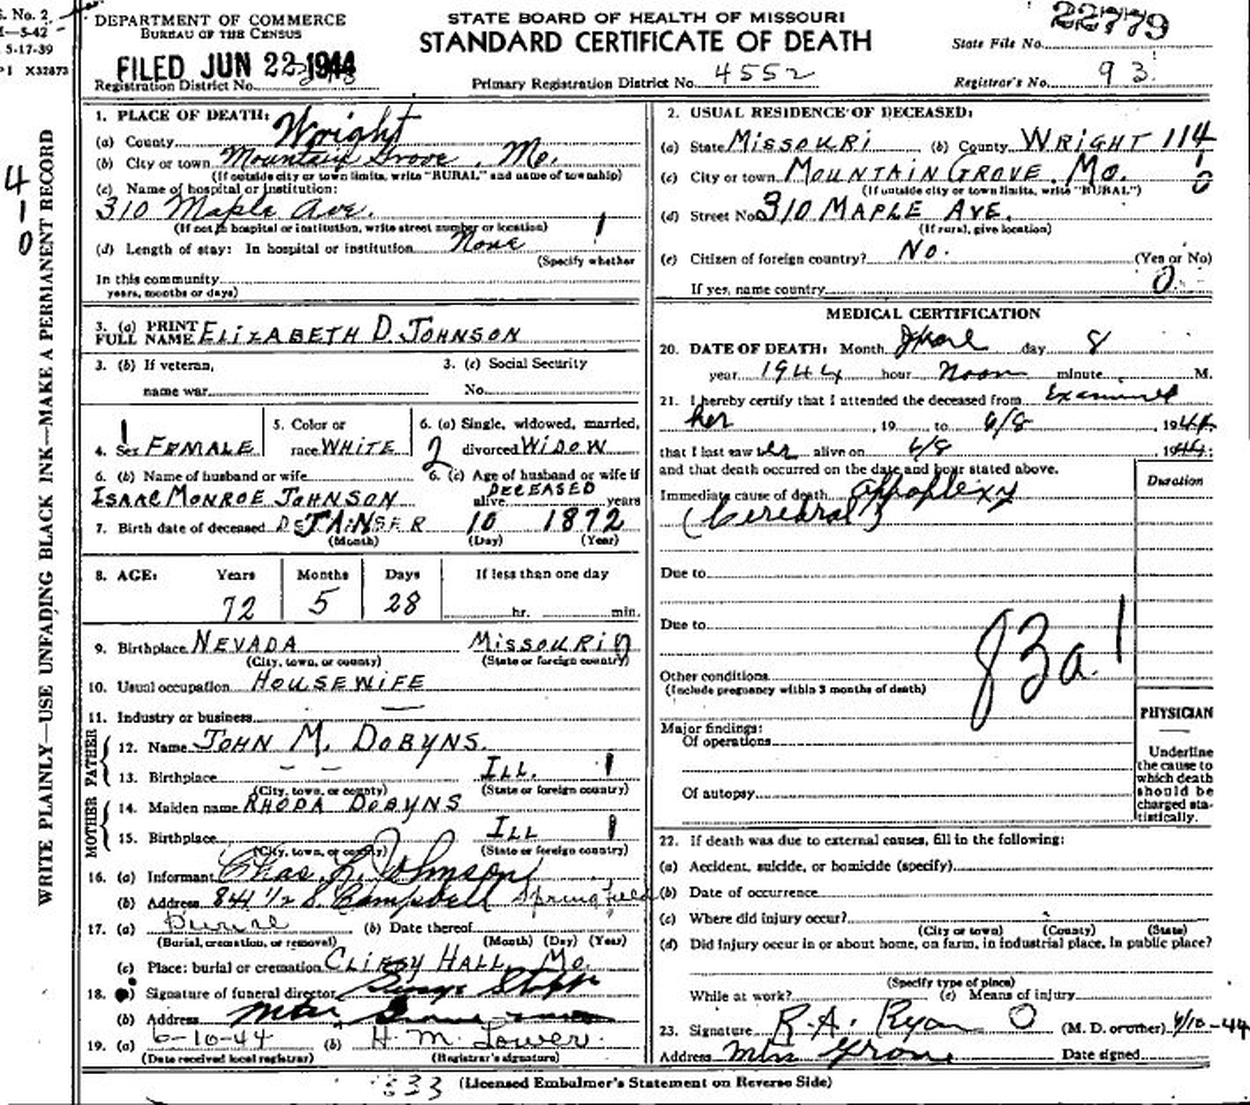 S. No. 2
M—5-42
5-17-39
PI X32873
WRITE PLAINLY—USE UNFADING BLACK INK—MAKE A PERMANENT RECORD
4
1
0
DEPARTMENT OF COMMERCE
BUREAU OF THE CENSUS
STATE BOARD OF HEALTH OF MISSOURI
STANDARD CERTIFICATE OF DEATH
22779
State File No.
FILED JUN 22 1944
Registration District No.
Primary Registration District No. 4552
Registrar's No. 93
1. PLACE OF DEATH:
(a) County Wright
(b) City or town Mountain Grove, Mo.
(If outside city or town limits, write "RURAL" and name of township)
(c) Name of hospital or institution:
310 Maple Ave.
(If not in hospital or institution, write street number or location) 1
(d) Length of stay: In hospital or institution None
(Specify whether
In this community
years, months or days)
3. (a) PRINT FULL NAME ELIZABETH D. JOHNSON
3. (b) If veteran,
name war
3. (c) Social Security
No.
4. Sex FEMALE 1
5. Color or
race WHITE
6. (a) Single, widowed, married,
2 divorced WIDOW
6. (b) Name of husband or wife
ISAAC MONROE JOHNSON
6. (c) Age of husband or wife if
alive DECEASED years
7. Birth date of deceased 10 1872
(Month) (Day) (Year)
8. AGE: Years Months Days If less than one day
72 5 28 hr. min.
9. Birthplace NEVADA MISSOURI 0
(City, town, or county) (State or foreign country)
10. Usual occupation HOUSEWIFE
11. Industry or business
FATHER
12. Name JOHN M. DOBYNS.
13. Birthplace — — ILL. 1
(City, town, or county) (State or foreign country)
MOTHER
14. Maiden name RHODA DOBYNS
15. Birthplace ILL 1
(City, town, or county) (State or foreign country)
16. (a) Informant Chas. L. Johnson
(b) Address 841 1/2 S. Campbell Springfield
17. (a) Burial (b) Date thereof
(Burial, cremation, or removal) (Month) (Day) (Year)
(c) Place: burial or cremation Mo.
18. (a) Signature of funeral director
(b) Address Mtn Grove
19. (a) 6-10-44 (b) H. M. Lower.
(Date received local registrar) (Registrar's signature)
2. USUAL RESIDENCE OF DECEASED:
(a) State MISSOURI (b) County WRIGHT 114
(c) City or town MOUNTAIN GROVE, MO. 1
(If outside city or town limits, write "RURAL") 0
(d) Street No. 310 MAPLE AVE.
(If rural, give location)
(e) Citizen of foreign country? NO. (Yes or No)
If yes, name country 0
MEDICAL CERTIFICATION
20. DATE OF DEATH: Month day 8
year 1944 hour Noon minute M.
21. I hereby certify that I attended the deceased from Examined
her, 19 to 6/8, 1944
that I last saw her alive on 6/8, 1944;
and that death occurred on the date and hour stated above.
Duration
Immediate cause of death Appoplexy
(Cerebral)
Due to
Due to
83a 1
Other conditions
(Include pregnancy within 3 months of death)
Major findings:
Of operations
Of autopsy
PHYSICIAN
Underline
the cause to
which death
should be
charged sta-
tistically.
22. If death was due to external causes, fill in the following:
(a) Accident, suicide, or homicide (specify)
(b) Date of occurrence
(c) Where did injury occur?
(City or town) (County) (State)
(d) Did injury occur in or about home, on farm, in industrial place, in public place?
(Specify type of place)
While at work? (e) Means of injury
23. Signature R. A. Ryan O (M. D. or other) 6/10-44
Address Mtn Grove Date signed
(Licensed Embalmer's Statement on Reverse Side)